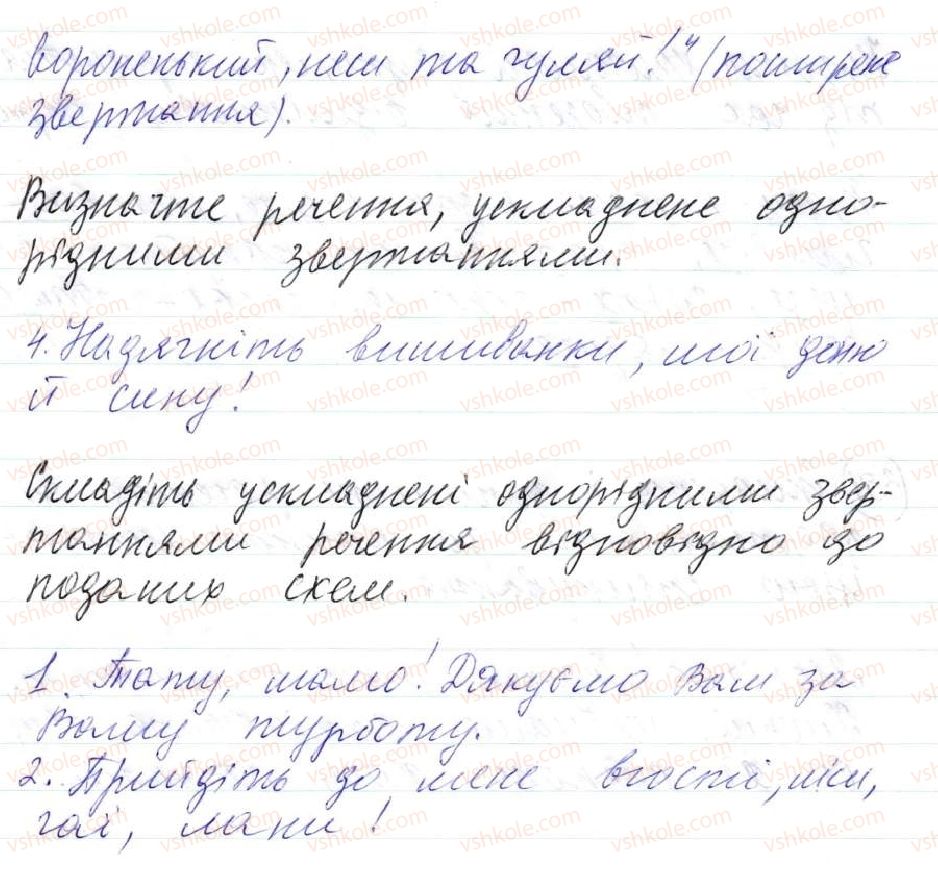 вороненький, неси та гуляй!" (поширене
звертання).
Визначте речення, ускладнене одно-
рідними звертаннями.
4. Надягніть вишиванки, мої доню
й сину!
Складіть ускладнені однорідними звер-
таннями речення відповідно до
поданих схем.
1. Тату, мамо! Дякуємо Вам за
Вашу турботу.
2. Прийдіть до мене вгості, ліси,
гаї, лани!